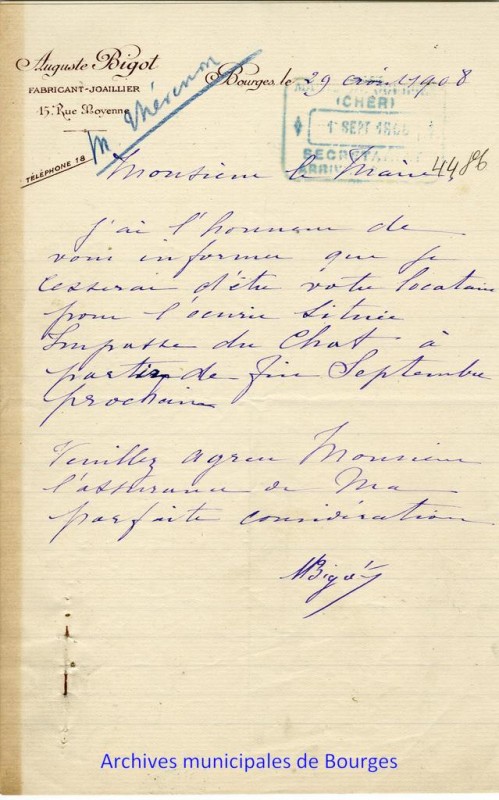 Auguste Bigot
FABRICANT-JOAILLIER
15, Rue Moyenne
TÉLÉPHONE 18
M Thévenon
Bourges, le 29 août 1908
(CHER)
1 SEPT 1908
SECRÉTARIAT
ARRIVÉE
4486
Monsieur le Maire,
J'ai l'honneur de
vous informer que je
cesserai d'être votre locataire
pour l'écurie située
Impasse du Chat à
partir de fin Septembre
prochain
Veuillez agréer Monsieur
l'assurance de Ma
parfaite considération
ABigot
Archives municipales de Bourges